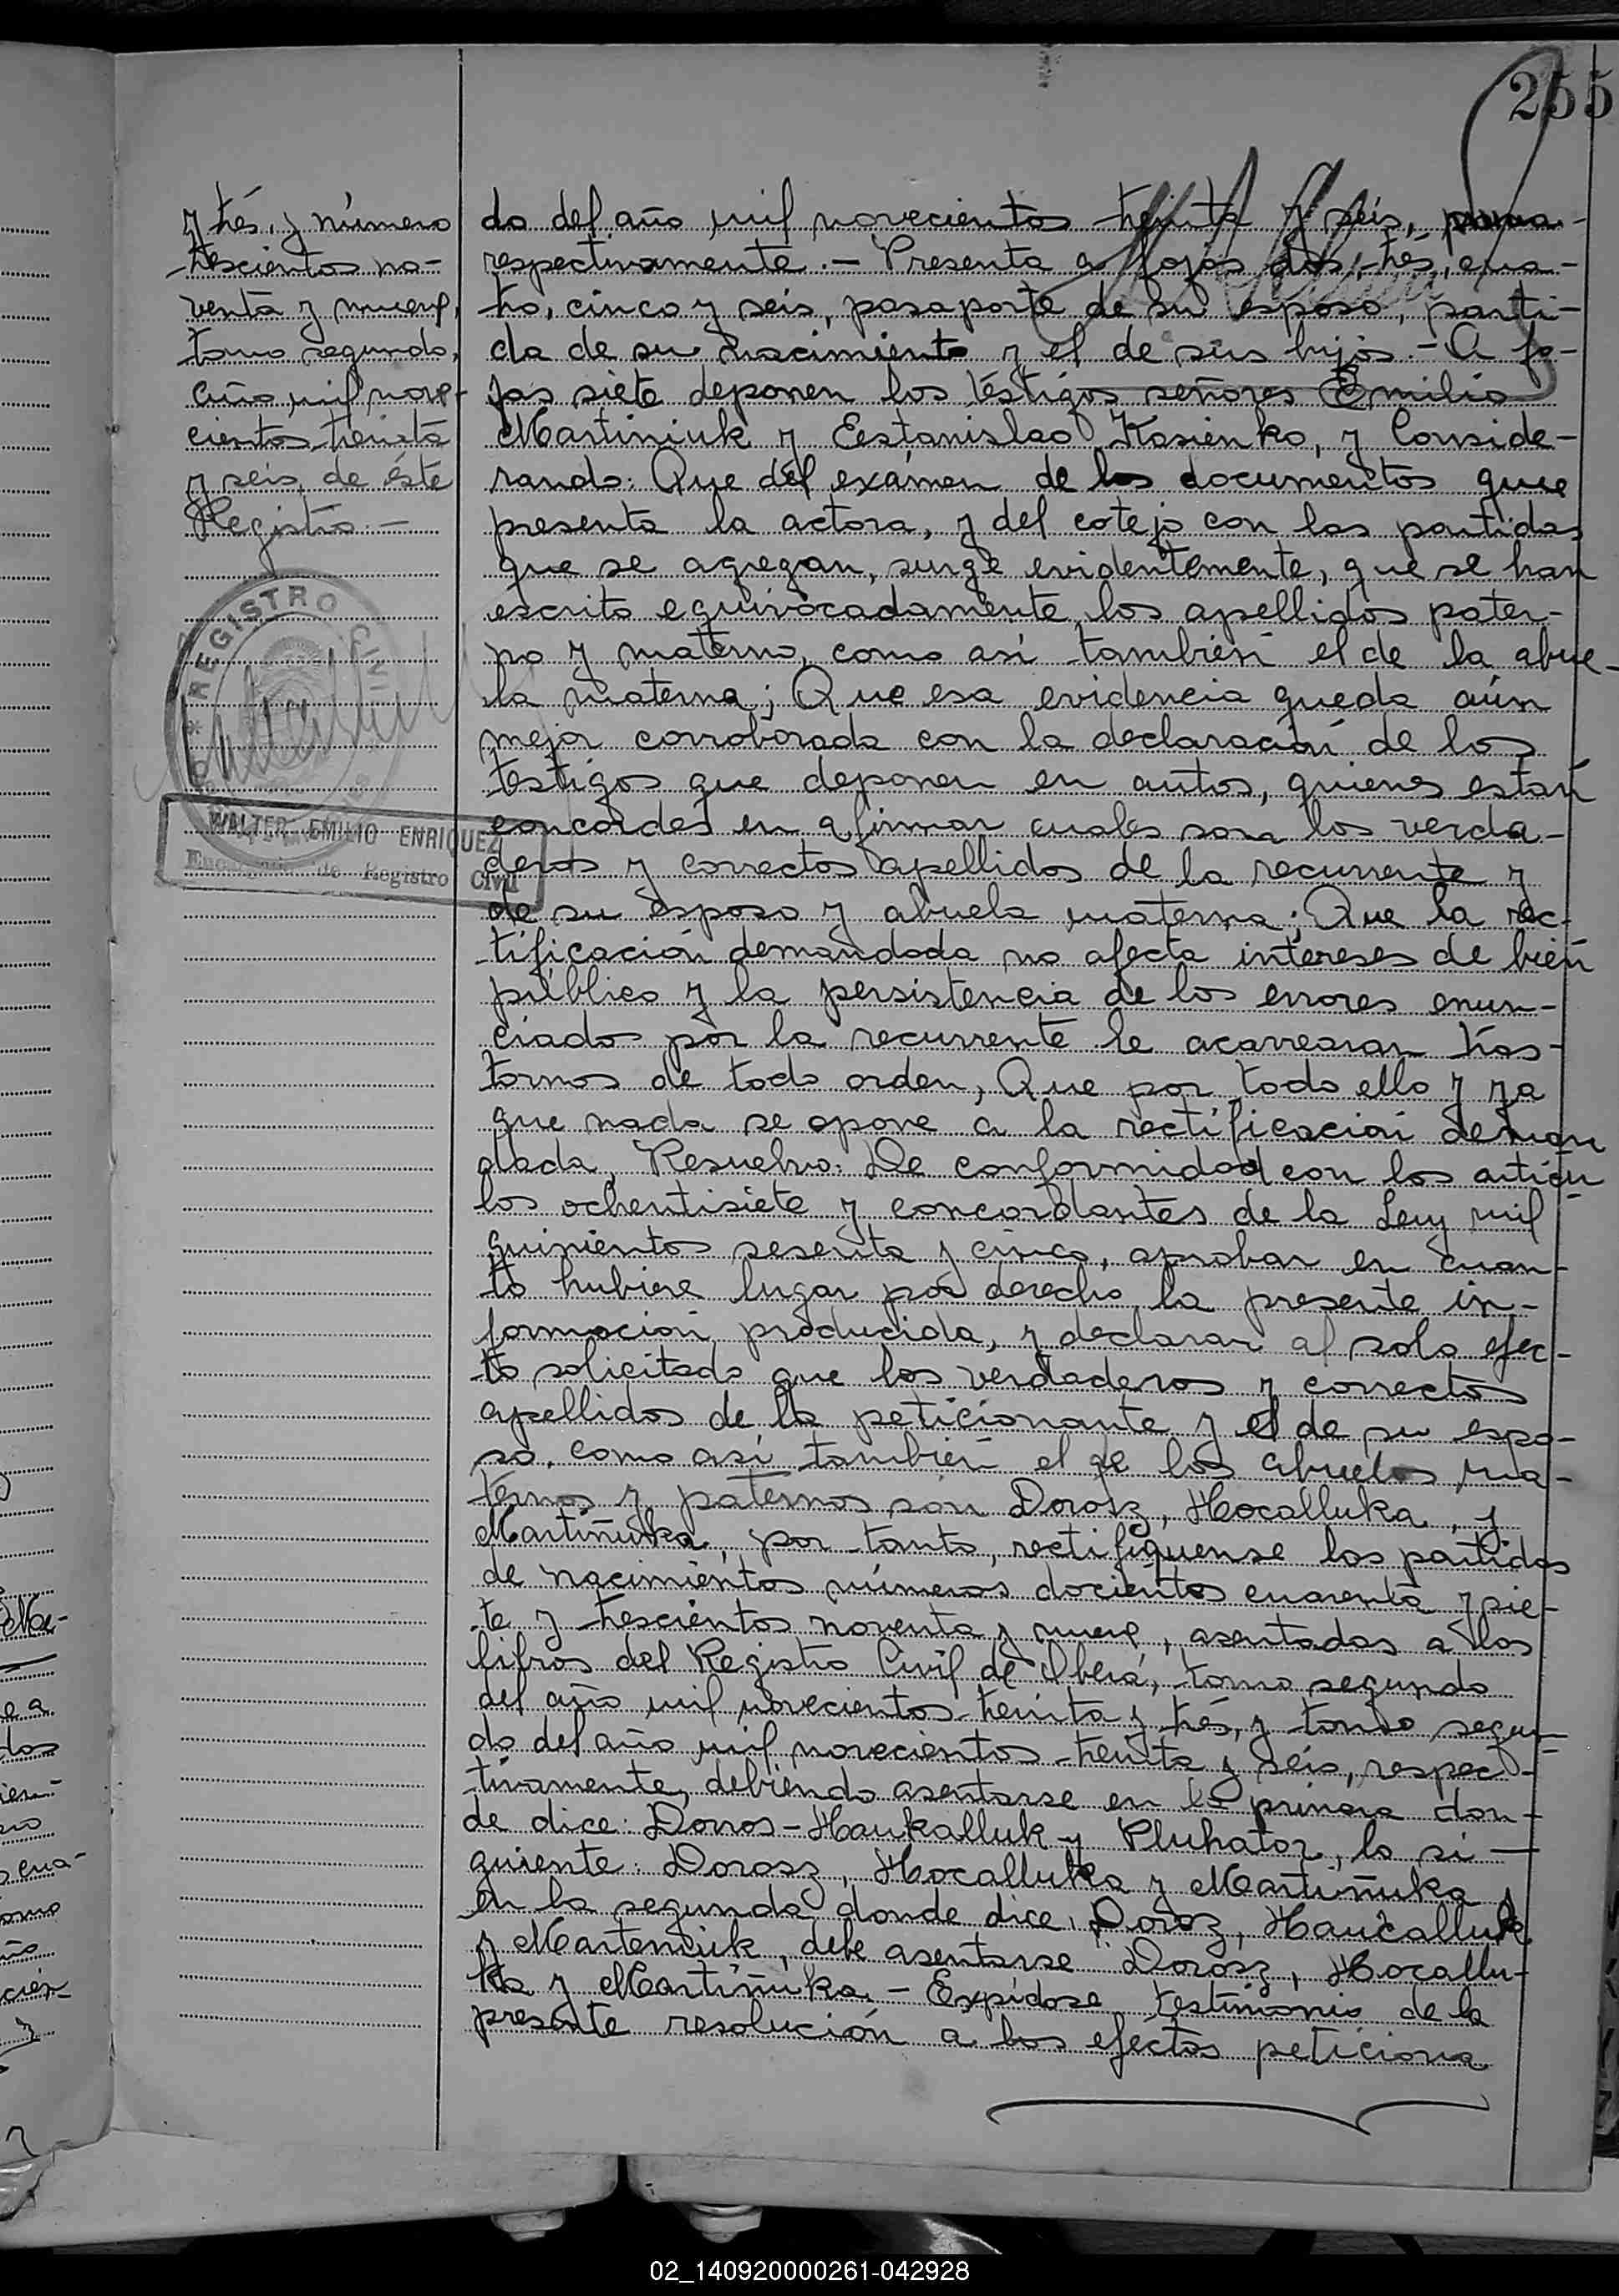 255
y trés, y número
trescientos no-
venta y nueve,
tomo segundo,
año mil nove-
cientos treinta
y seis, de éste
Registro.-
REGISTRO CIVIL
WALTER EMILIO ENRIQUEZ
Encargado de Registro Civil
do del año mil novecientos treinta y seis,
respectivamente.- Presenta a fojas dos, trés, cua-
tro, cinco y seis, pasaporte de su esposo, parti-
da de su nacimiento y el de sus hijos.- A fo-
jas siete deponen los téstigos señores Emilio
Martiniuk y Eestanislao Kasienko, y Conside-
rando: Que del exámen de los documentos que
presenta la actora, y del cotejo con las partidas
que se agregan, surge evidentemente, que se han
escrito equivocadamente los apellidos pater-
no y materno, como así también el de la abue-
la materna; Que esa evidencia queda aún
mejor corroborada con la declaración de los
testigos que deponen en autos, quienes están
concordes en afirmar cuales son los verda-
deros y correctos apellidos de la recurrente y
de su esposo y abuela materna; Que la rec-
tificación demandada no afecta intereses de bién
público y la persistencia de los errores enun-
ciados por la recurrente le acarrearan tras-
tornos de todo orden, Que por todo ello y ya
que nada se opone a la rectificación deman
dada, Resuelvo: De conformidad con los artícu
los ochentisiete y concordantes de la Ley mil
quinientos sesenta y cinco, aprobar en cuan-
to hubiere lugar por derecho la presente in-
formación producida, y declarar al solo efec-
to solicitado que los verdaderos y correctos
apellidos de la peticionante y el de su espo-
so, como así también el de los abuelos ma-
ternos y paternos son Dorosz, Hocalluka, y
Martiñuka, por tanto, rectifíquense las partidas
de nacimientos números docientos cuarenta y sie-
te y trescientos noventa y nueve, asentadas a los
libros del Registro Civil de Oberá, tomo segundo
del año mil novecientos treinta y trés, y tomo segun
do del año mil novecientos treinta y seis, respec-
tivamente, debiendo asentarse en la primera don-
de dice: Donos-Haukalluk y Pluhator, lo si-
guiente: Dorosz, Hocalluka y Martiñuka y
en la segunda donde dice, Doroz, Haucalluk
y Marteniuk, debe asentarse Dorosz, Hocallu-
ka y Martiñuka.- Expídase testimonio de la
presente resolución a los efectos peticiona
02_140920000261-042928